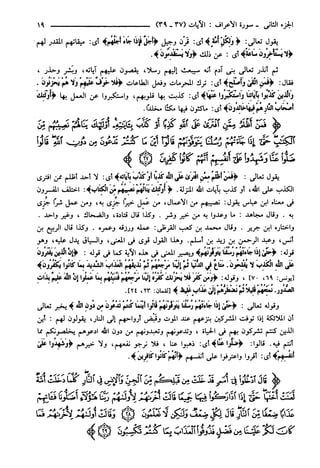 الجزء الثاني - سورة الأعراف : الآيات (٣٧ - ٣٩) ١٩
يقول تعالى: ﴿ولكل أمة﴾ أي: قرن وجيل ﴿أجل فإذا جاء أجلهم﴾ أي: ميقاتهم المقدر لهم
﴿لا يستأخرون ساعة﴾ أي : عن ذلك ﴿ولا يستقدمون﴾ .
ثم أنذر تعالى بني آدم أنه سيبعث إليهم رسلا، يقصون عليهم آياته، وبشر وحذر ،
فقال: ﴿فمن اتقى وأصلح﴾ أي: ترك المحرمات وفعل الطاعات ﴿فلا خوف عليهم ولا هم يحزنون .
والذين كذبوا بآياتنا واستكبروا عنها﴾ أي: كذبت بها قلوبهم، واستكبروا عن العمل بها ﴿أولئك
أصحاب النار هم فيها خالدون﴾ أي: ماكثون فيها مكثا مخلدا.
﴿فَمَنْ أَظْلَمُ مِمَّنِ افْتَرَى عَلَى اللَّهِ كَذِبًا أَوْ كَذَّبَ بِآيَاتِهِ أُولَئِكَ يَنَالُهُمْ نَصِيبُهُمْ مِنَ
الْكِتَابِ حَتَّى إِذَا جَاءَتْهُمْ رُسُلُنَا يَتَوَفَّوْنَهُمْ قَالُوا أَيْنَ مَا كُنْتُمْ تَدْعُونَ مِنْ دُونِ اللَّهِ قَالُوا
ضَلُّوا عَنَّا وَشَهِدُوا عَلَى أَنْفُسِهِمْ أَنَّهُمْ كَانُوا كَافِرِينَ (٣٧)﴾
يقول تعالى : ﴿فمن أظلم ممن افترى على الله كذبا أو كذب بآياته﴾ أي: لا أحد أظلم ممن افترى
الكذب على الله، أو كذب بآيات الله المنزلة. ﴿أولئك ينالهم نصيبهم من الكتاب﴾: اختلف المفسرون
في معناه ابن عباس يقول: نصيبهم من الأعمال، من عمل خيرا جزي به، ومن عمل شرا جزي
به . وقال مجاهد : ما وعدوا به من خير وشر . وكذا قال قتادة، والضحاك ، وغير واحد .
واختاره ابن جرير . وقال محمد بن كعب القرظي: عمله ورزقه وعمره . وكذا قال الربيع بن
أنس، وعبد الرحمن بن زيد بن أسلم. وهذا القول قوي في المعنى، والسياق يدل عليه، وهو
قوله: ﴿حتى إذا جاءتهم رسلنا يتوفونهم﴾ ويصير المعنى في هذه الآية كما في قوله : ﴿إن الذين يفترون
على الله الكذب لا يفلحون. متاع في الدنيا ثم إلينا مرجعهم ثم نذيقهم العذاب الشديد بما كانوا يكفرون﴾
[يونس: ٦٩، ٧٠] ، وقوله: ﴿ومن كفر فلا يحزنك كفره إلينا مرجعهم فننبئهم بما عملوا إن الله عليم بذات
الصدور. نمتعهم قليلا ثم نضطرهم إلى عذاب غليظ﴾ [لقمان: ٢٣، ٢٤] .
وقوله تعالى : ﴿حتى إذا جاءتهم رسلنا يتوفونهم قالوا أين ما كنتم تدعون من دون الله﴾ يخبر تعالى
أن الملائكة إذا توفت المشركين تفزعهم عند الموت وقبض أرواحهم إلى النار، يقولون لهم : أين
الذين كنتم تشركون بهم في الحياة ، وتدعونهم وتعبدونهم من دون الله ادعوهم يخلصونكم مما
أنتم فيه. قالوا: ﴿ضلوا عنا﴾ أي: ذهبوا عنا ، فلا نرجو نفعهم، ولا خيرهم ﴿وشهدوا على
أنفسهم﴾ أي: أقروا واعترفوا على أنفسهم ﴿أنهم كانوا كافرين﴾ .
﴿قَالَ ادْخُلُوا فِي أُمَمٍ قَدْ خَلَتْ مِنْ قَبْلِكُمْ مِنَ الْجِنِّ وَالْإِنْسِ فِي النَّارِ كُلَّمَا دَخَلَتْ أُمَّةٌ
لَعَنَتْ أُخْتَهَا حَتَّى إِذَا ادَّارَكُوا فِيهَا جَمِيعًا قَالَتْ أُخْرَاهُمْ لِأُولَاهُمْ رَبَّنَا هَؤُلَاءِ أَضَلُّونَا فَآتِهِمْ
عَذَابًا ضِعْفًا مِنَ النَّارِ قَالَ لِكُلٍّ ضِعْفٌ وَلَكِنْ لَا تَعْلَمُونَ (٣٨) وَقَالَتْ أُولَاهُمْ لِأُخْرَاهُمْ فَمَا
كَانَ لَكُمْ عَلَيْنَا مِنْ فَضْلٍ فَذُوقُوا الْعَذَابَ بِمَا كُنْتُمْ تَكْسِبُونَ (٣٩)﴾